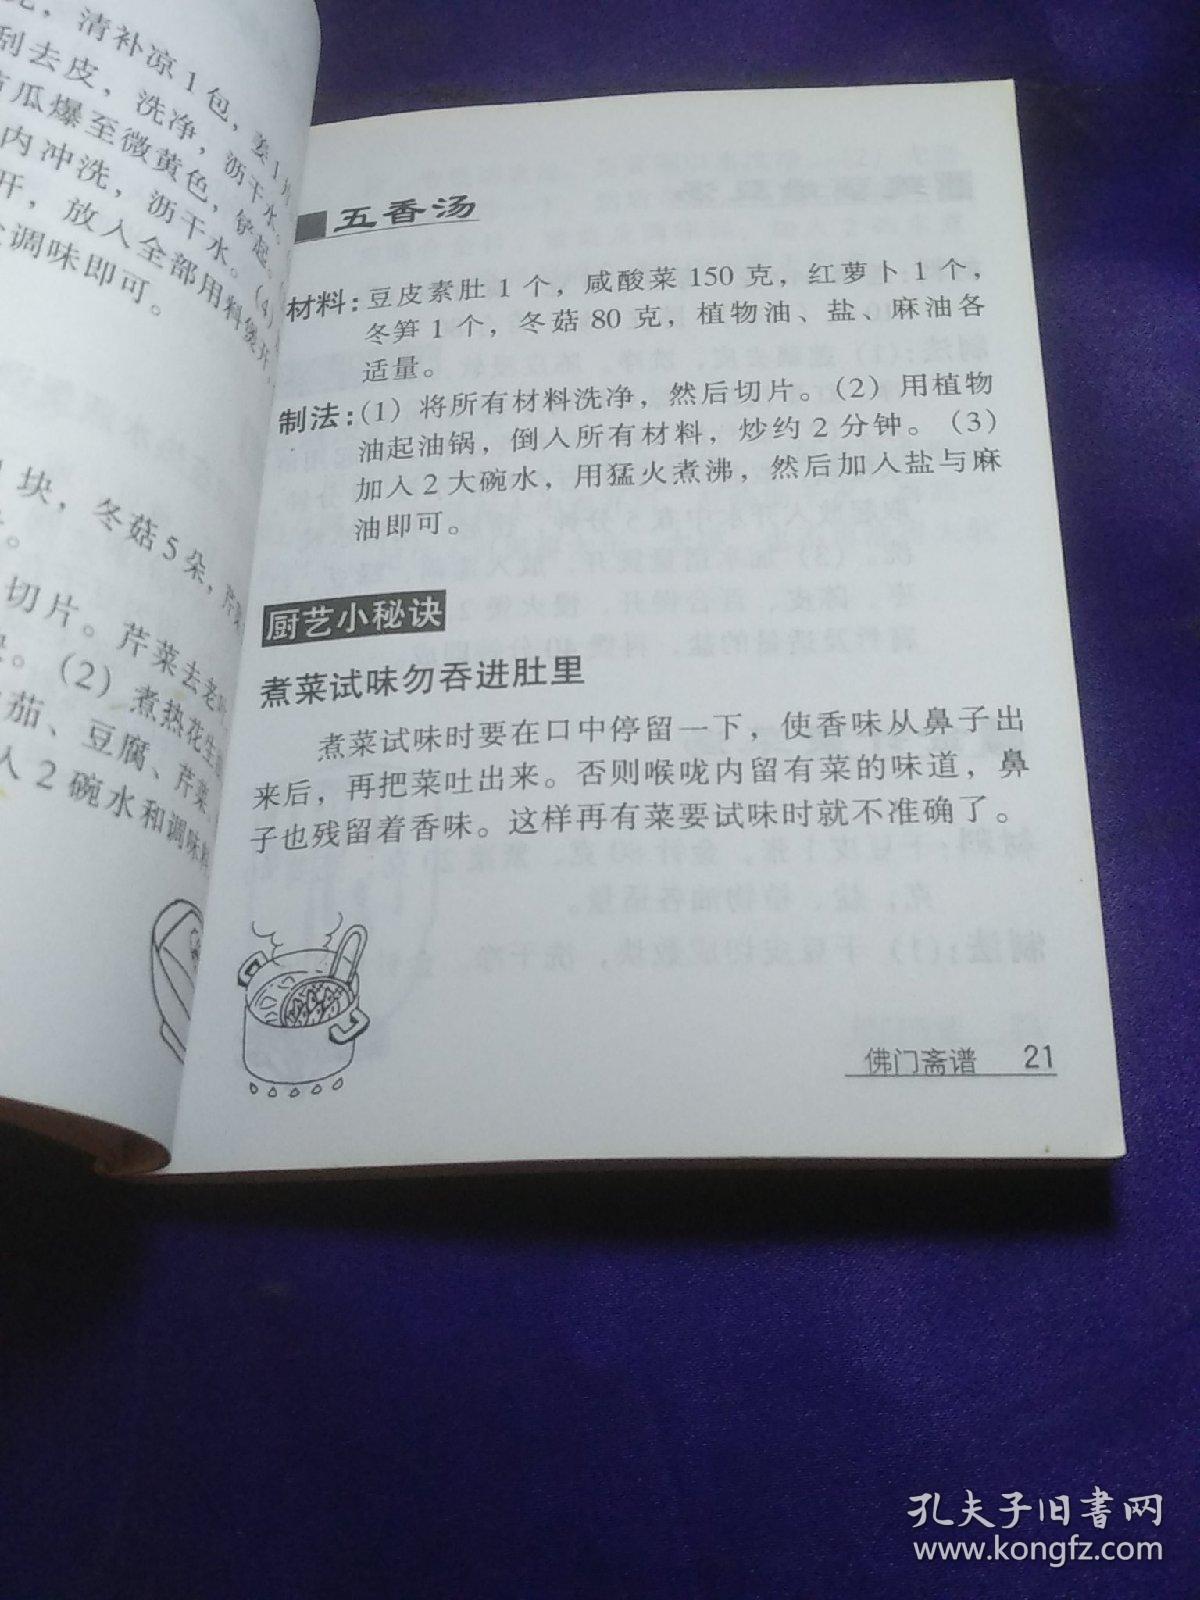 清补凉1包，姜1
刮去皮，洗净，沥干水。
瓜爆至微黄色，铲起。
内冲洗，沥干水。(4)
开，放入全部用料煲
调味即可。
块，冬菇5朵，芹
切片。芹菜去老叶
。(2)煮热花生
茄、豆腐、芹菜
入2碗水和调味
五香汤
材料：豆皮素肚1个，咸酸菜150克，红萝卜1个，
冬笋1个，冬菇80克，植物油、盐、麻油各
适量。
制法：(1)将所有材料洗净，然后切片。(2)用植物
油起油锅，倒入所有材料，炒约2分钟。(3)
加入2大碗水，用猛火煮沸，然后加入盐与麻
油即可。
厨艺小秘诀
煮菜试味勿吞进肚里
煮菜试味时要在口中停留一下，使香味从鼻子出
来后，再把菜吐出来。否则喉咙内留有菜的味道，鼻
子也残留着香味。这样再有菜要试味时就不准确了。
佛门斋谱 21
孔夫子旧书网
www.kongfz.com